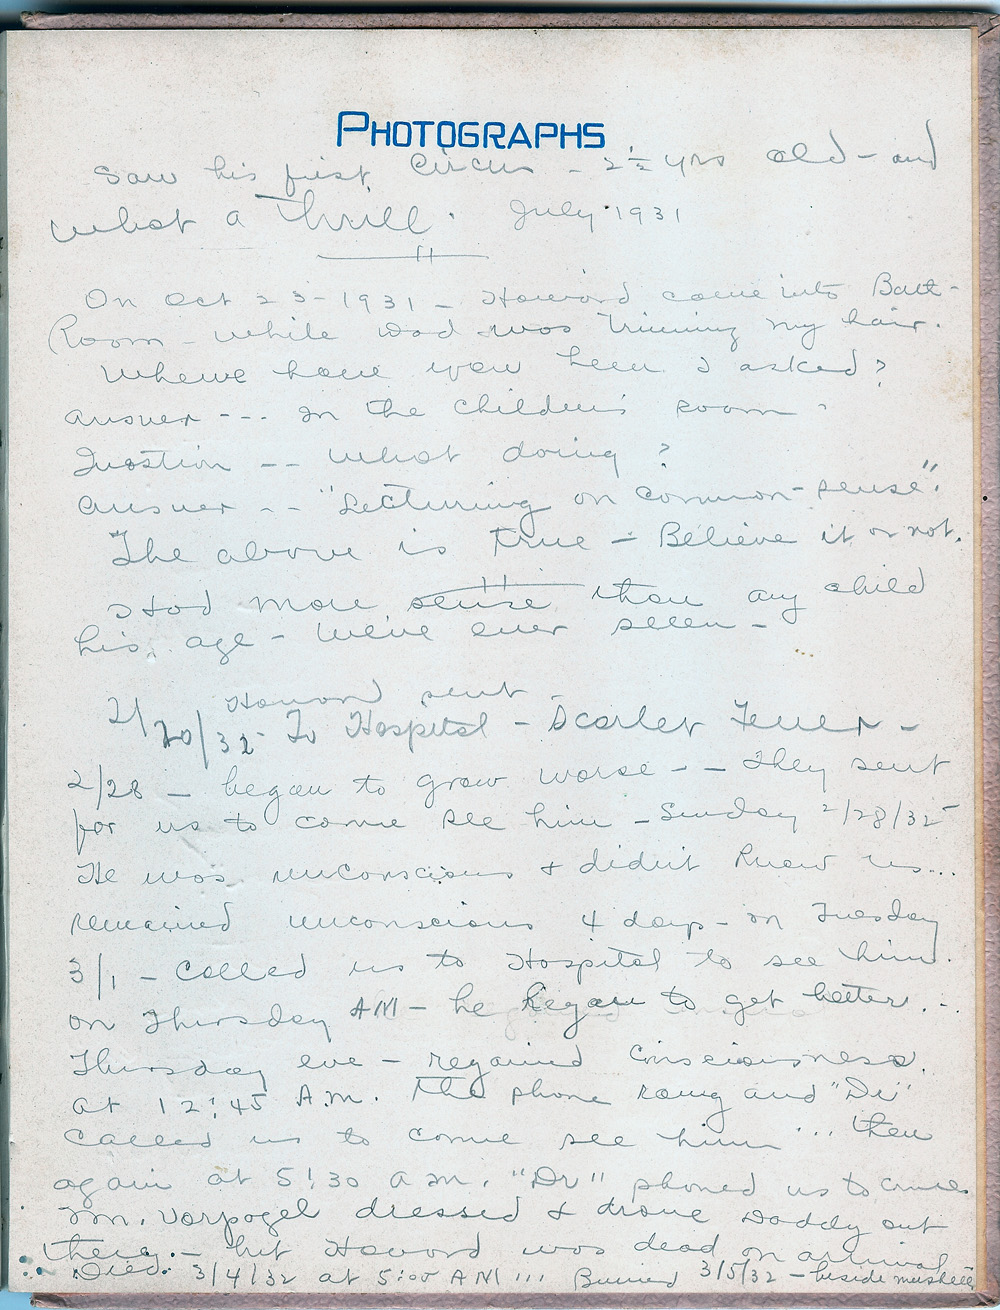 PHOTOGRAPHS
Saw his first Circus - 2½ yrs old - and
what a Thrill. July 1931
On Oct 23 - 1931 - Howard came into Bath-
Room - while Dad was trimming my hair.
Where have you been I asked?
Answer --- In the children's room -
Question -- What doing?
Answer -- "Lecturing on common-sense".
The above is true - Believe it or not.
Had more sense than any child
his age - We've ever seen -
Howard sent
2/20/32 - To Hospital - Scarlet Fever -
2/28 - began to grow worse - - They sent
for us to come see him - Sunday 2/28/32 -
He was unconscious & didn't know us...
remained unconscious 4 days - on Tuesday
3/1 - called us to Hospital to see him.
on Thursday AM - he began to get better. -
Thursday eve - regained consciousness.
at 12:45 A.M. The phone rang and "Dr"
called us to come see him ... then
again at 5:30 A.M. "Dr" phoned us to come
Mr. Vorpogel dressed & drove Daddy out
there - but Howard was dead on arrival
Died 3/4/32 at 5:00 AM!!! Buried 3/5/32 - beside